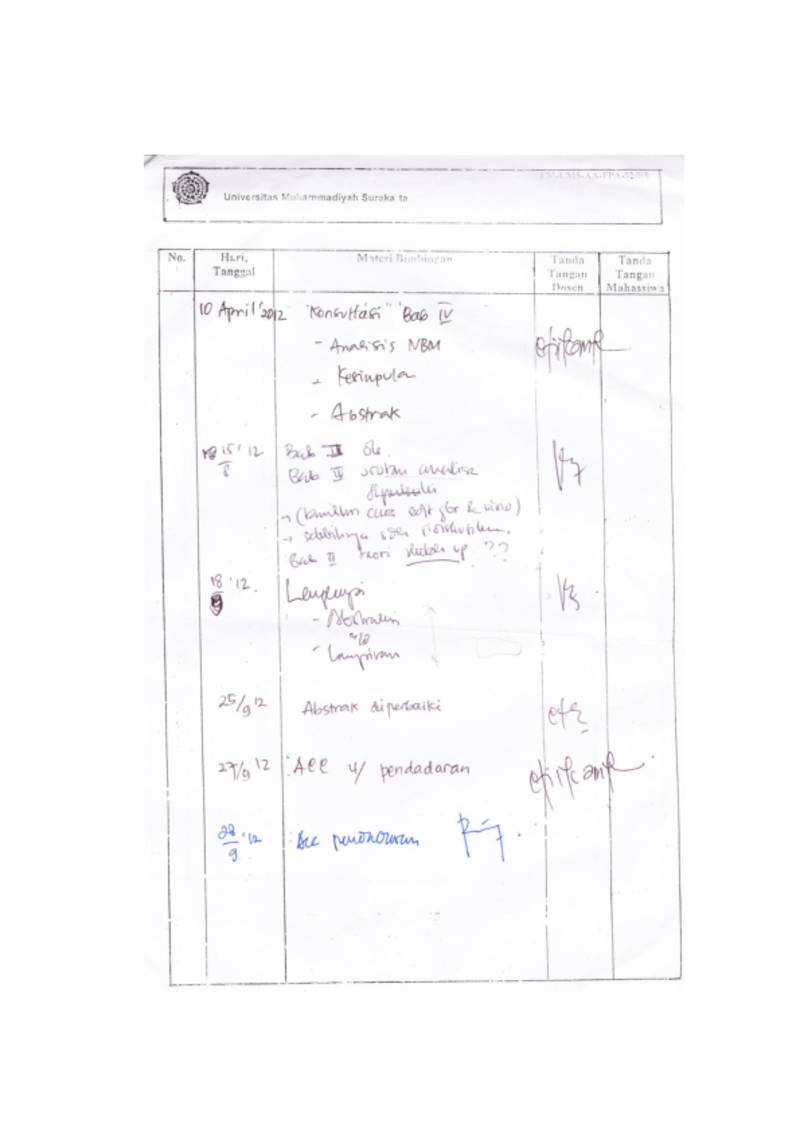 Universitas Muhammadiyah Suraka ta
No.
Hari,
Tanggal
Materi Bimbingan
Tanda
Tangan
Dosen
Tanda
Tangan
Mahasiswa
10 April '2012 "Konsultasi" Bab IV
- Analisis NBM
- Kesimpula
- Abstrak
15/8 '12 Bab III Ok.
Bab IV urutan analisa
diperbaiki
→
→
Bab II teori up. ??
18/9 '12. Lengkapi
- Abstraksi
- Lampiran
25/9 12 Abstrak diperbaiki
27/9 '12 Acc u/ pendadaran
28/9 '12 Acc pendadaran